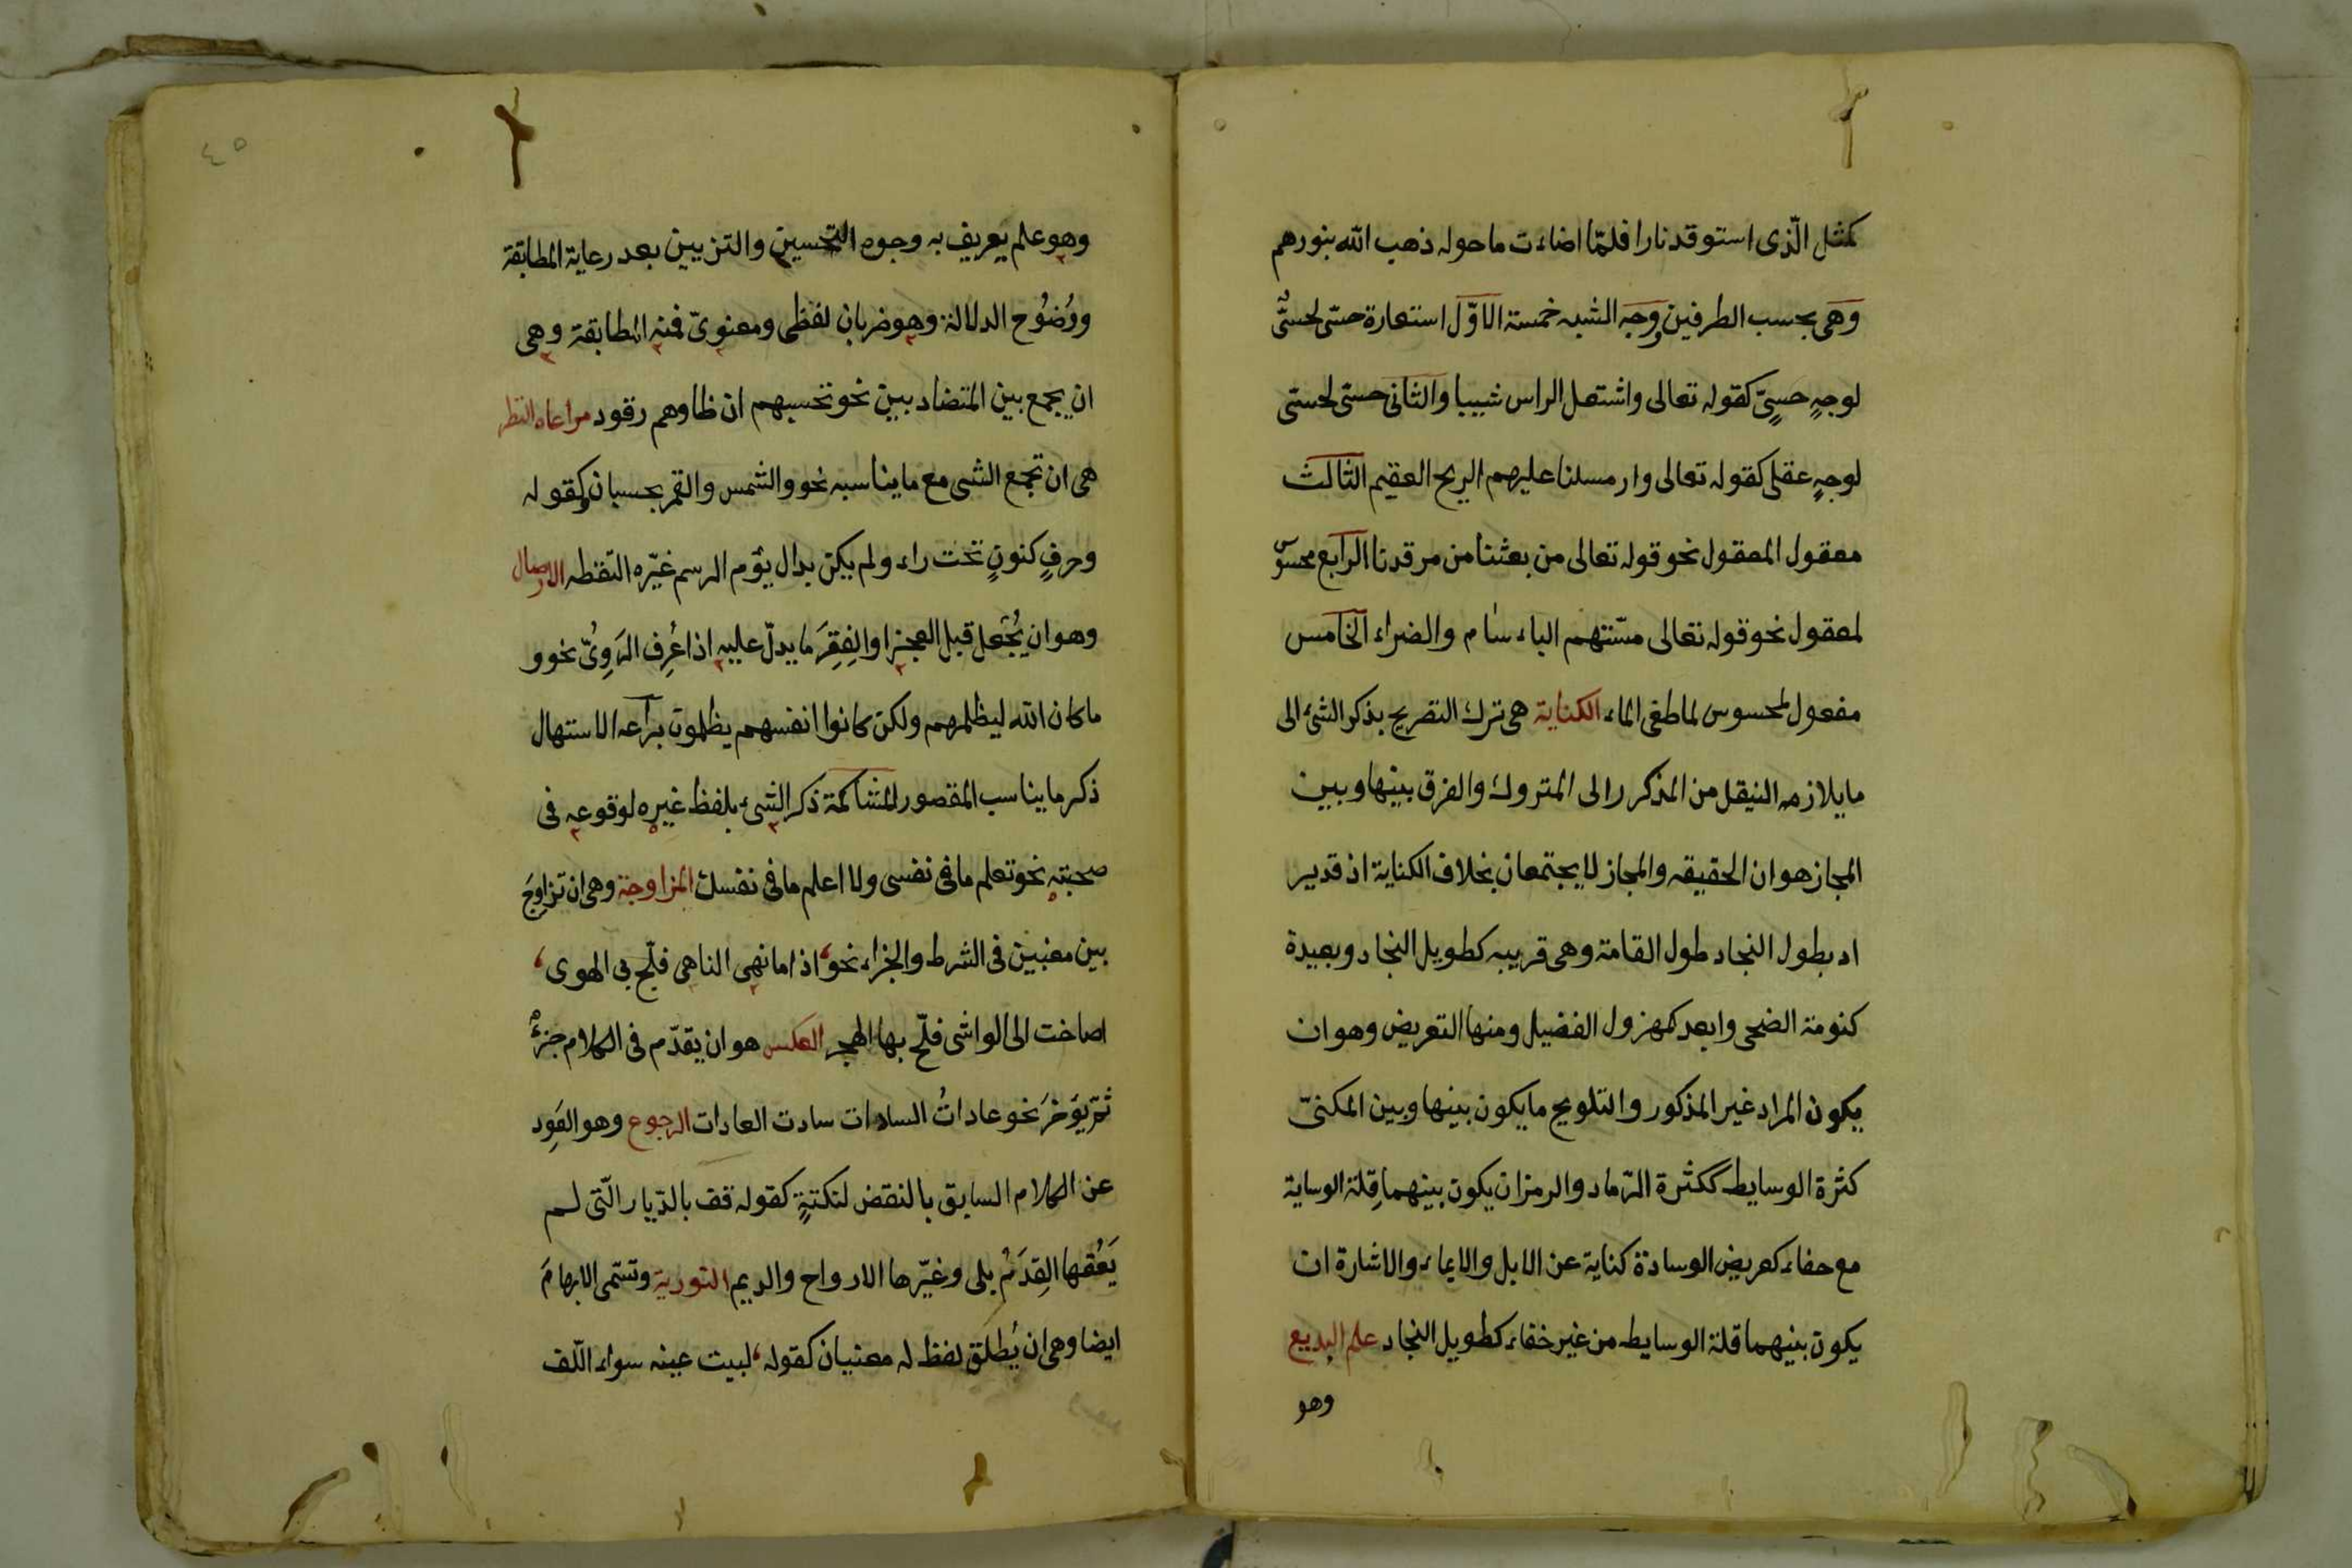 كمثل الّذى استوقد نارا فلمّا اضاءت ما حوله ذهب الله بنورهم
وهى بحسب الطرفين ووجه الشبه خمسة الاوّل استعارة حسّى لحسّىٍّ
لوجهٍ حسىٍّ كقوله تعالى واشتعل الراس شيبا والثانى حسّى لحسّى
لوجهٍ عقلى كقوله تعالى وارسلنا عليهم الريح العقيم الثالث
معقول المعقول نحو قوله تعالى من بعثنا من مرقدنا الرابع محسوس
لمعقول نحو قوله تعالى مسّتهم الباءساء م والضراء الخامس
مفعول لمحسوس لما طغى الماء الكناية هى ترك التصريح بذكر الشئ الى
ما يلازمه النيقل من المذكر را لى المتروك والفرق بينها وبين
المجاز هو ان الحقيقه والمجاز لا يجتمعان بخلاف الكناية اذ قد ير
اد بطول النجاد طول القامة وهى قريبه كطويل النجاد وبعيدة
كنومة الضحى وابعد كمهزول الفضيل ومنها التعريض وهو ان
يكون المراد غير المذكور والتلويح ما يكون بينها وبين المكنىّ
كثرة الوسايط ككثرة الرّماد والرمز ان يكون بينهما قِلة الوساية
مع حفاء كعريض الوسادة كناية عن الابل والايماء والاشارة ان
يكون بينهما قلة الوسايطه من غير خفاء كطويل النجاد علم البديع
وهو
٤٥
وهو علم يعريف به وجوه التحسين والتزيين بعد رعاية المطابقة
ووُضُوح الدلالة وهو ضربان لفظى ومعنوىّ فمنه المطابقة وهى
ان يجمع بين المتضاد بين نحو تحسبهم ان ظا وهم رقود مراعاه النظر
هى ان تجمع الشى مع ما يناسبه نحو والشمس والقمر بحسبان وكقوله
وحرفٍ كنونٍ تحت راء ولم يكن بدال يؤم الرسم غيّره النقطه الارصال
وهو ان يُجْعل قبل العجز او الفِقِرَ ما يدلّ عليه اذا عُرِف الرَوِىُّ نحو و
ما كان الله ليظلمهم ولكن كانوا انفسهم يظلمون براعه الاستهال
ذكر ما يناسب المقصور المشاكمة ذكر الشىء بلفظ غيره لوقوعه فى
صحبته نحو تعلم ما فى نفسى ولا اعلم ما فى نفسك المزاوجة وهى ان تزاوِجَ
بين معنيين فى الشرط والجزاء نحو اذا ما نهى الناهى فلجّ بى الهوى
اصاخت الى الواشى فلجّ بها الهجر العكس هو ان يقدّم فى الكلام جزءٌ
ثمّ يؤخرَ نحو عاداتُ السادات سادت العادات الرجوع وهو العَوِد
عن الكلام السابق بالنقض لنكتةٍ كقوله قف بالدّيار الّتى لم
يَعُفها القِدَمُ بلى وغيّرها الارواح والديم التورية وتسمّى الابهامَ
ايضا وهى ان يُطلق لفظ له معنيان كقوله لبيت عينه سواء اللّف